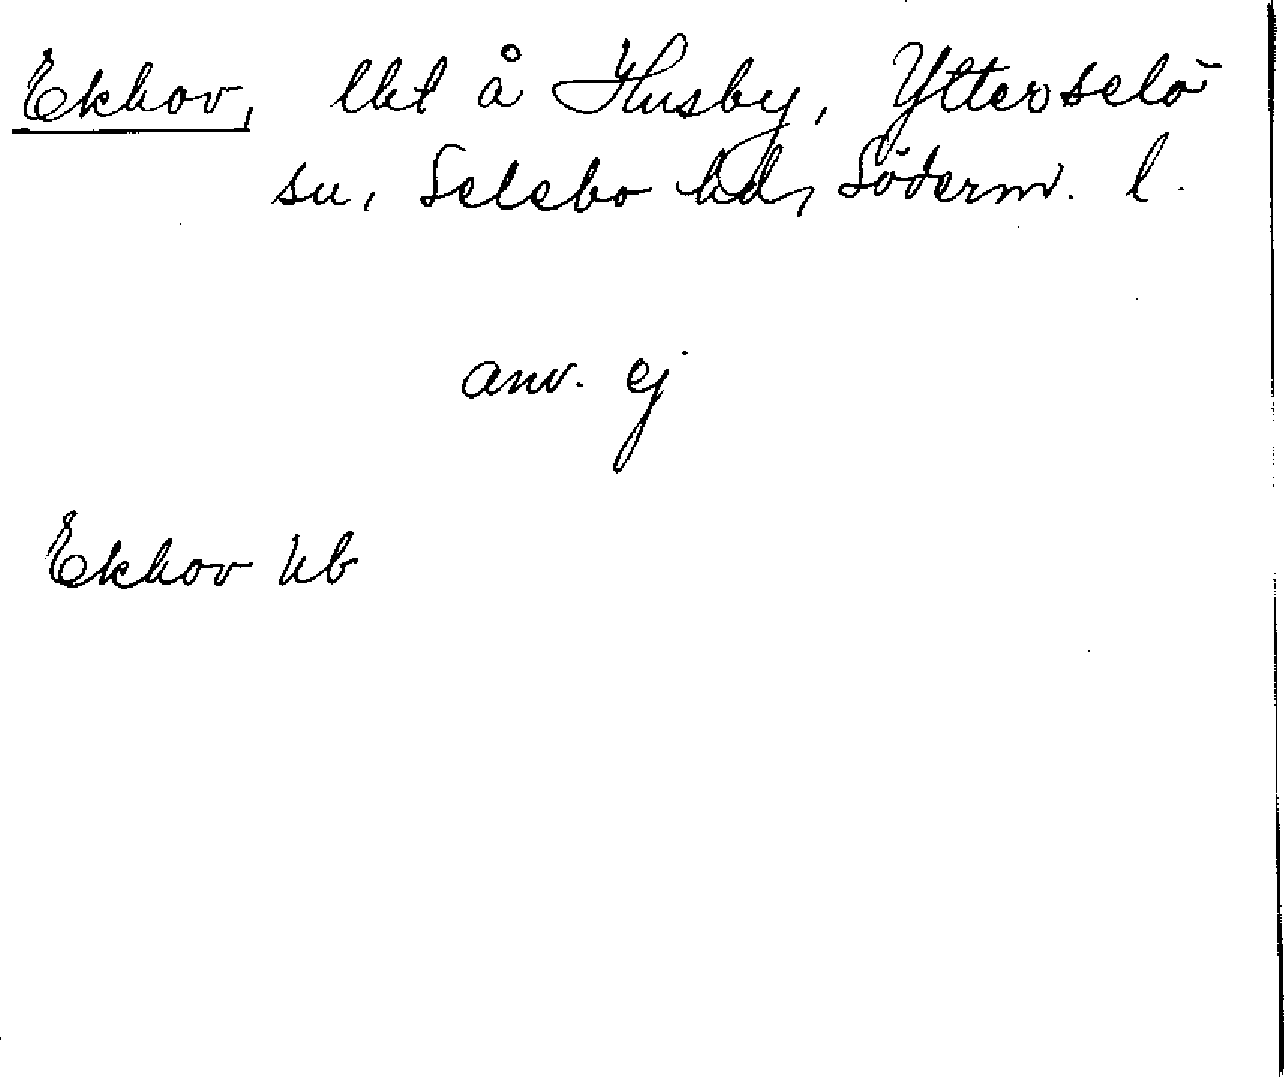 Ekhov, lht å Husby, Ytterselö
sn, Selebo hd, Söderm. l.
anv. ej
Ekhov kb